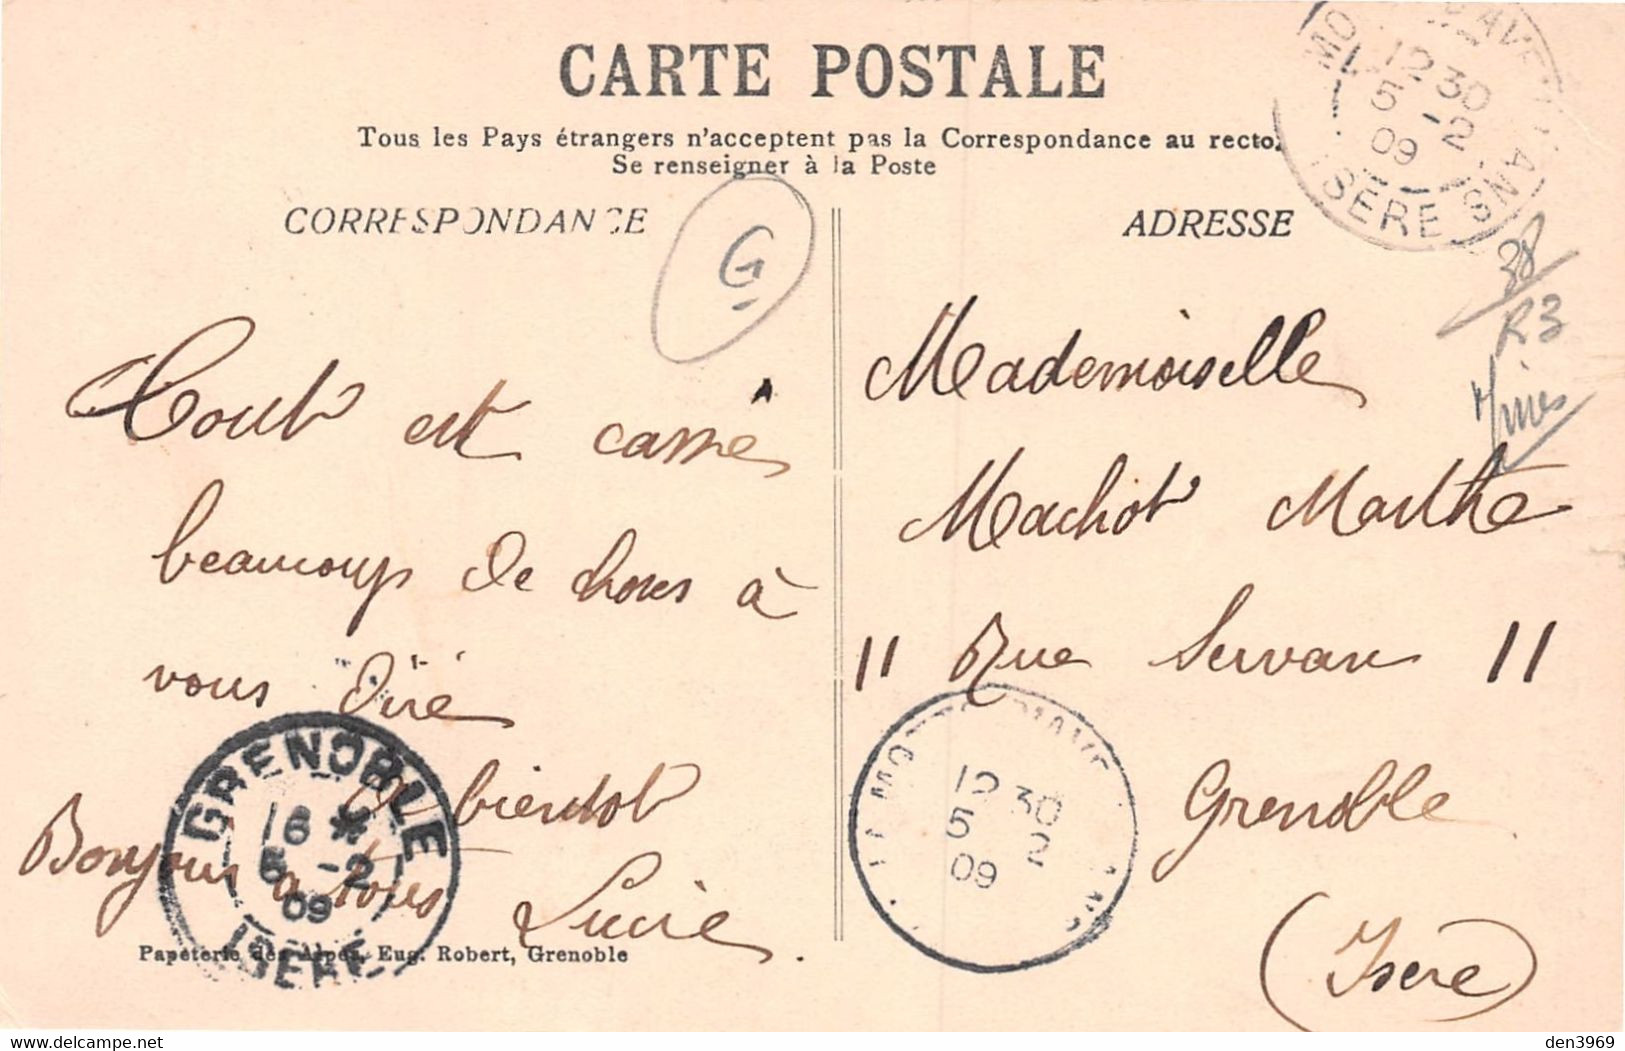 CARTE POSTALE
Tous les Pays étrangers n'acceptent pas la Correspondance au recto.
Se renseigner à la Poste
CORRESPONDANCE
ADRESSE
G
38
R3
Mines
12 30
5 -2
09
ISÈRE
Tout est cassé
beaucoup de choses à
vous dire
A bientot
Bonjour a tous
Lucie
Mademoiselle
Machot Marthe
11 Rue Servan 11
Grenoble
(Isère)
GRENOBLE
16 *
5 -2
09
ISERE
12 30
5 2
09
Papeterie des Alpes, Eug. Robert, Grenoble
den3969